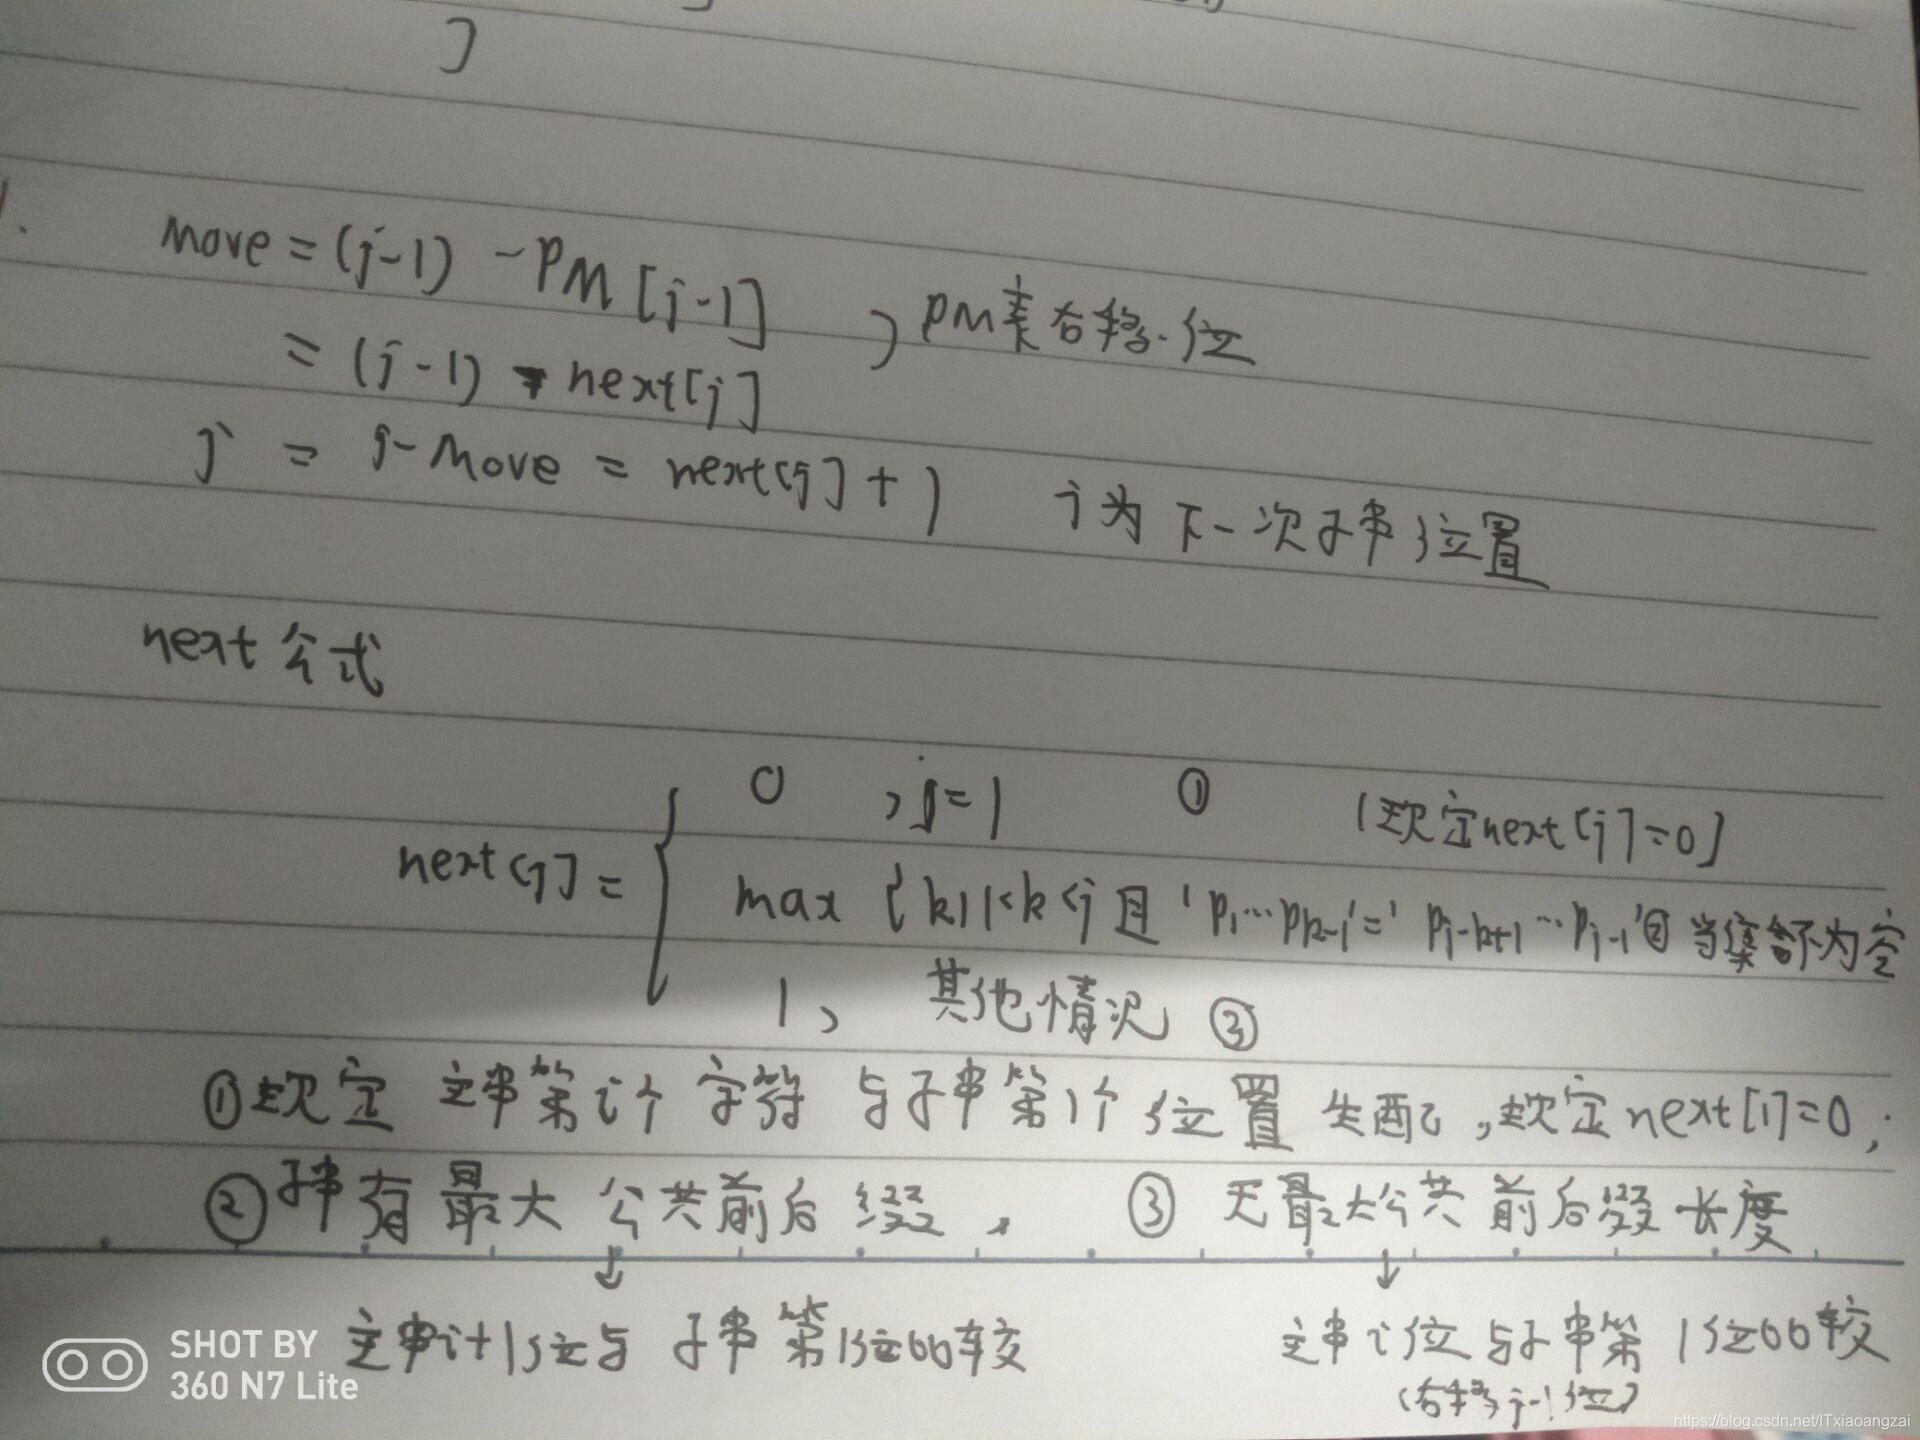 ]
move = (j-1) - PM[j-1] , PM表右移位
= (j-1) - next[j]
j = j-move = next[j]+1 j为下一次子串位置
next公式
next[j] = { 0 , j=1 ① (规定next[j]=0]
max {k|1<k<j 且 'p₁…pk-1'='pj-k+1…pj-1' ② 当集合不为空
1, 其他情况 ③
①规定 主串第i个字符与子串第1个位置失配, 规定next[1]=0;
②子串有最大公共前后缀. ③ 无最大公共前后缀长度
↓ ↓
主串i+1位与子串第1位比较 主串i位与子串第1位比较
(右移j-1位)
SHOT BY
360 N7 Lite
https://blog.csdn.net/ITxiaoangzai